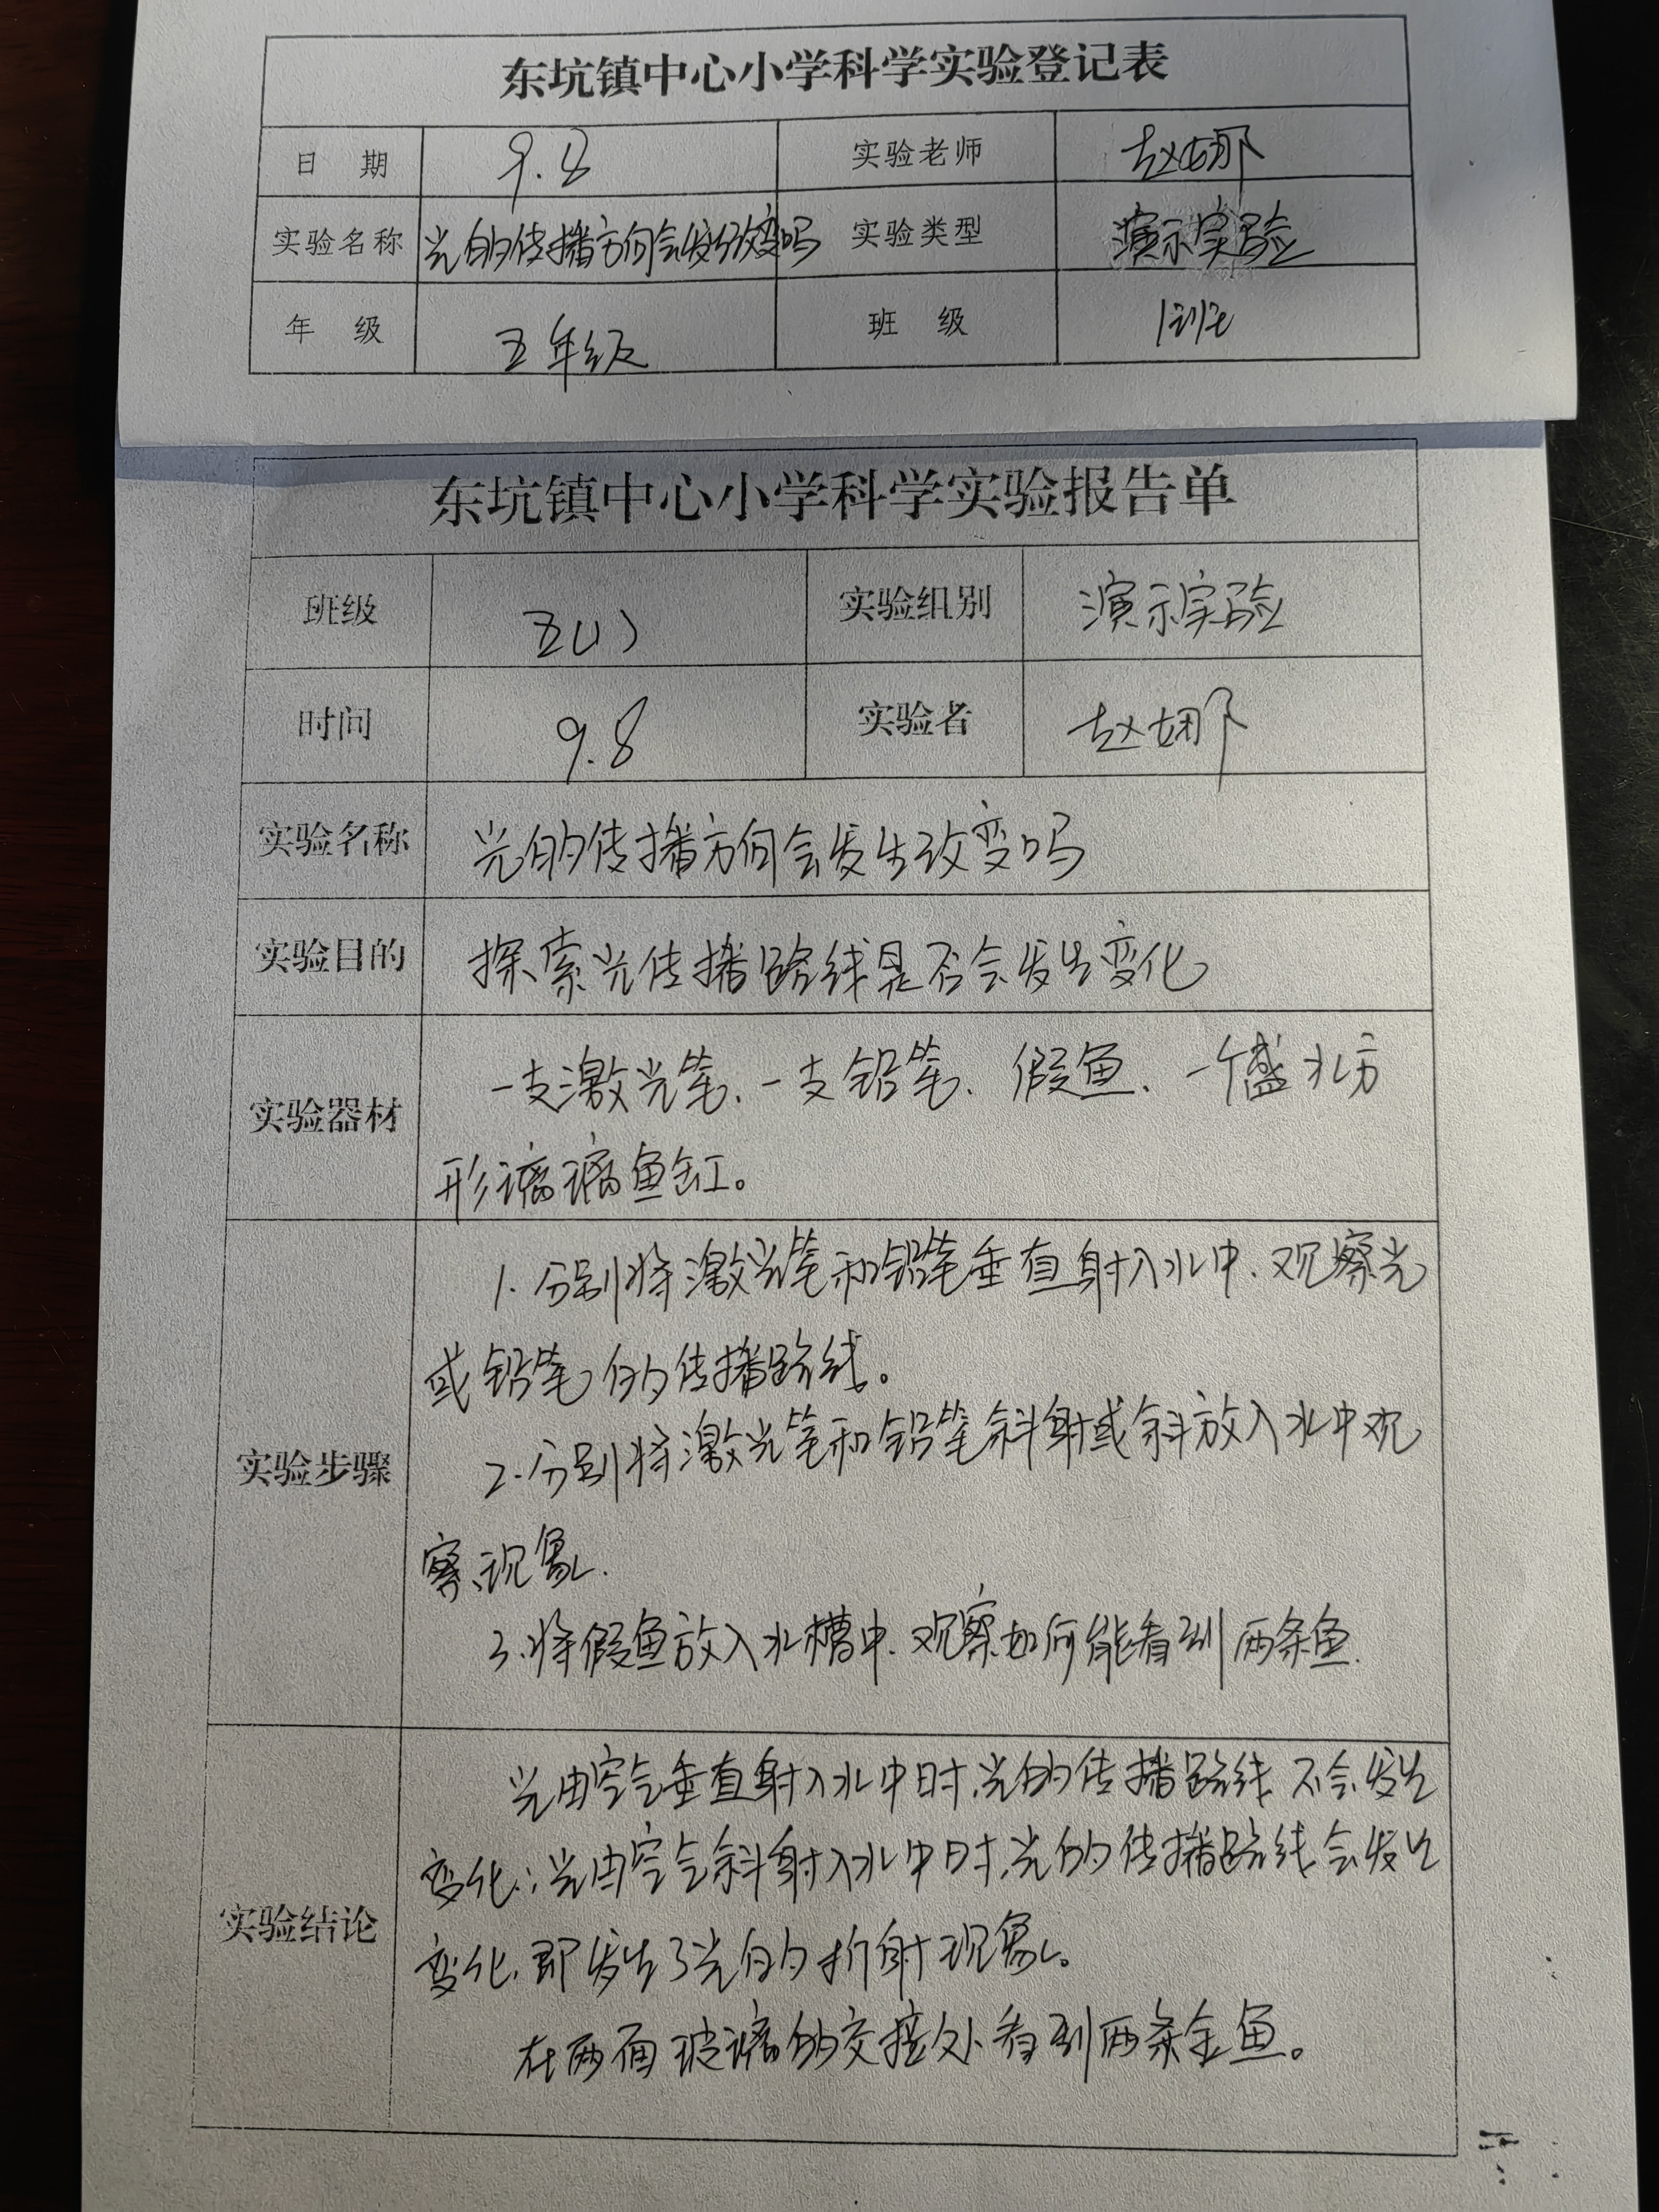 东坑镇中心小学科学实验登记表
日 期 9.8 实验老师 赵娜
实验名称 光的传播方向会发生改变吗 实验类型 演示实验
年 级 五年级 班 级 1班
东坑镇中心小学科学实验报告单
班级 五(1) 实验组别 演示实验
时间 9.8 实验者 赵娜
实验名称 光的传播方向会发生改变吗
实验目的 探索光传播路线是否会发生变化
实验器材 一支激光笔、一支铅笔、假鱼、一个盛水方
形玻璃鱼缸。
1. 分别将激光笔和铅笔垂直射入水中、观察光
或铅笔的传播路线。
实验步骤 2. 分别将激光笔和铅笔斜射或斜放入水中观
察现象.
3. 将假鱼放入水槽中、观察如何能看到两条鱼.
光由空气垂直射入水中时,光的传播路线不会发生
变化;光由空气斜射入水中时,光的传播路线会发生
实验结论 变化,即发生了光的折射现象。
在两面玻璃的交接处看到两条金鱼。